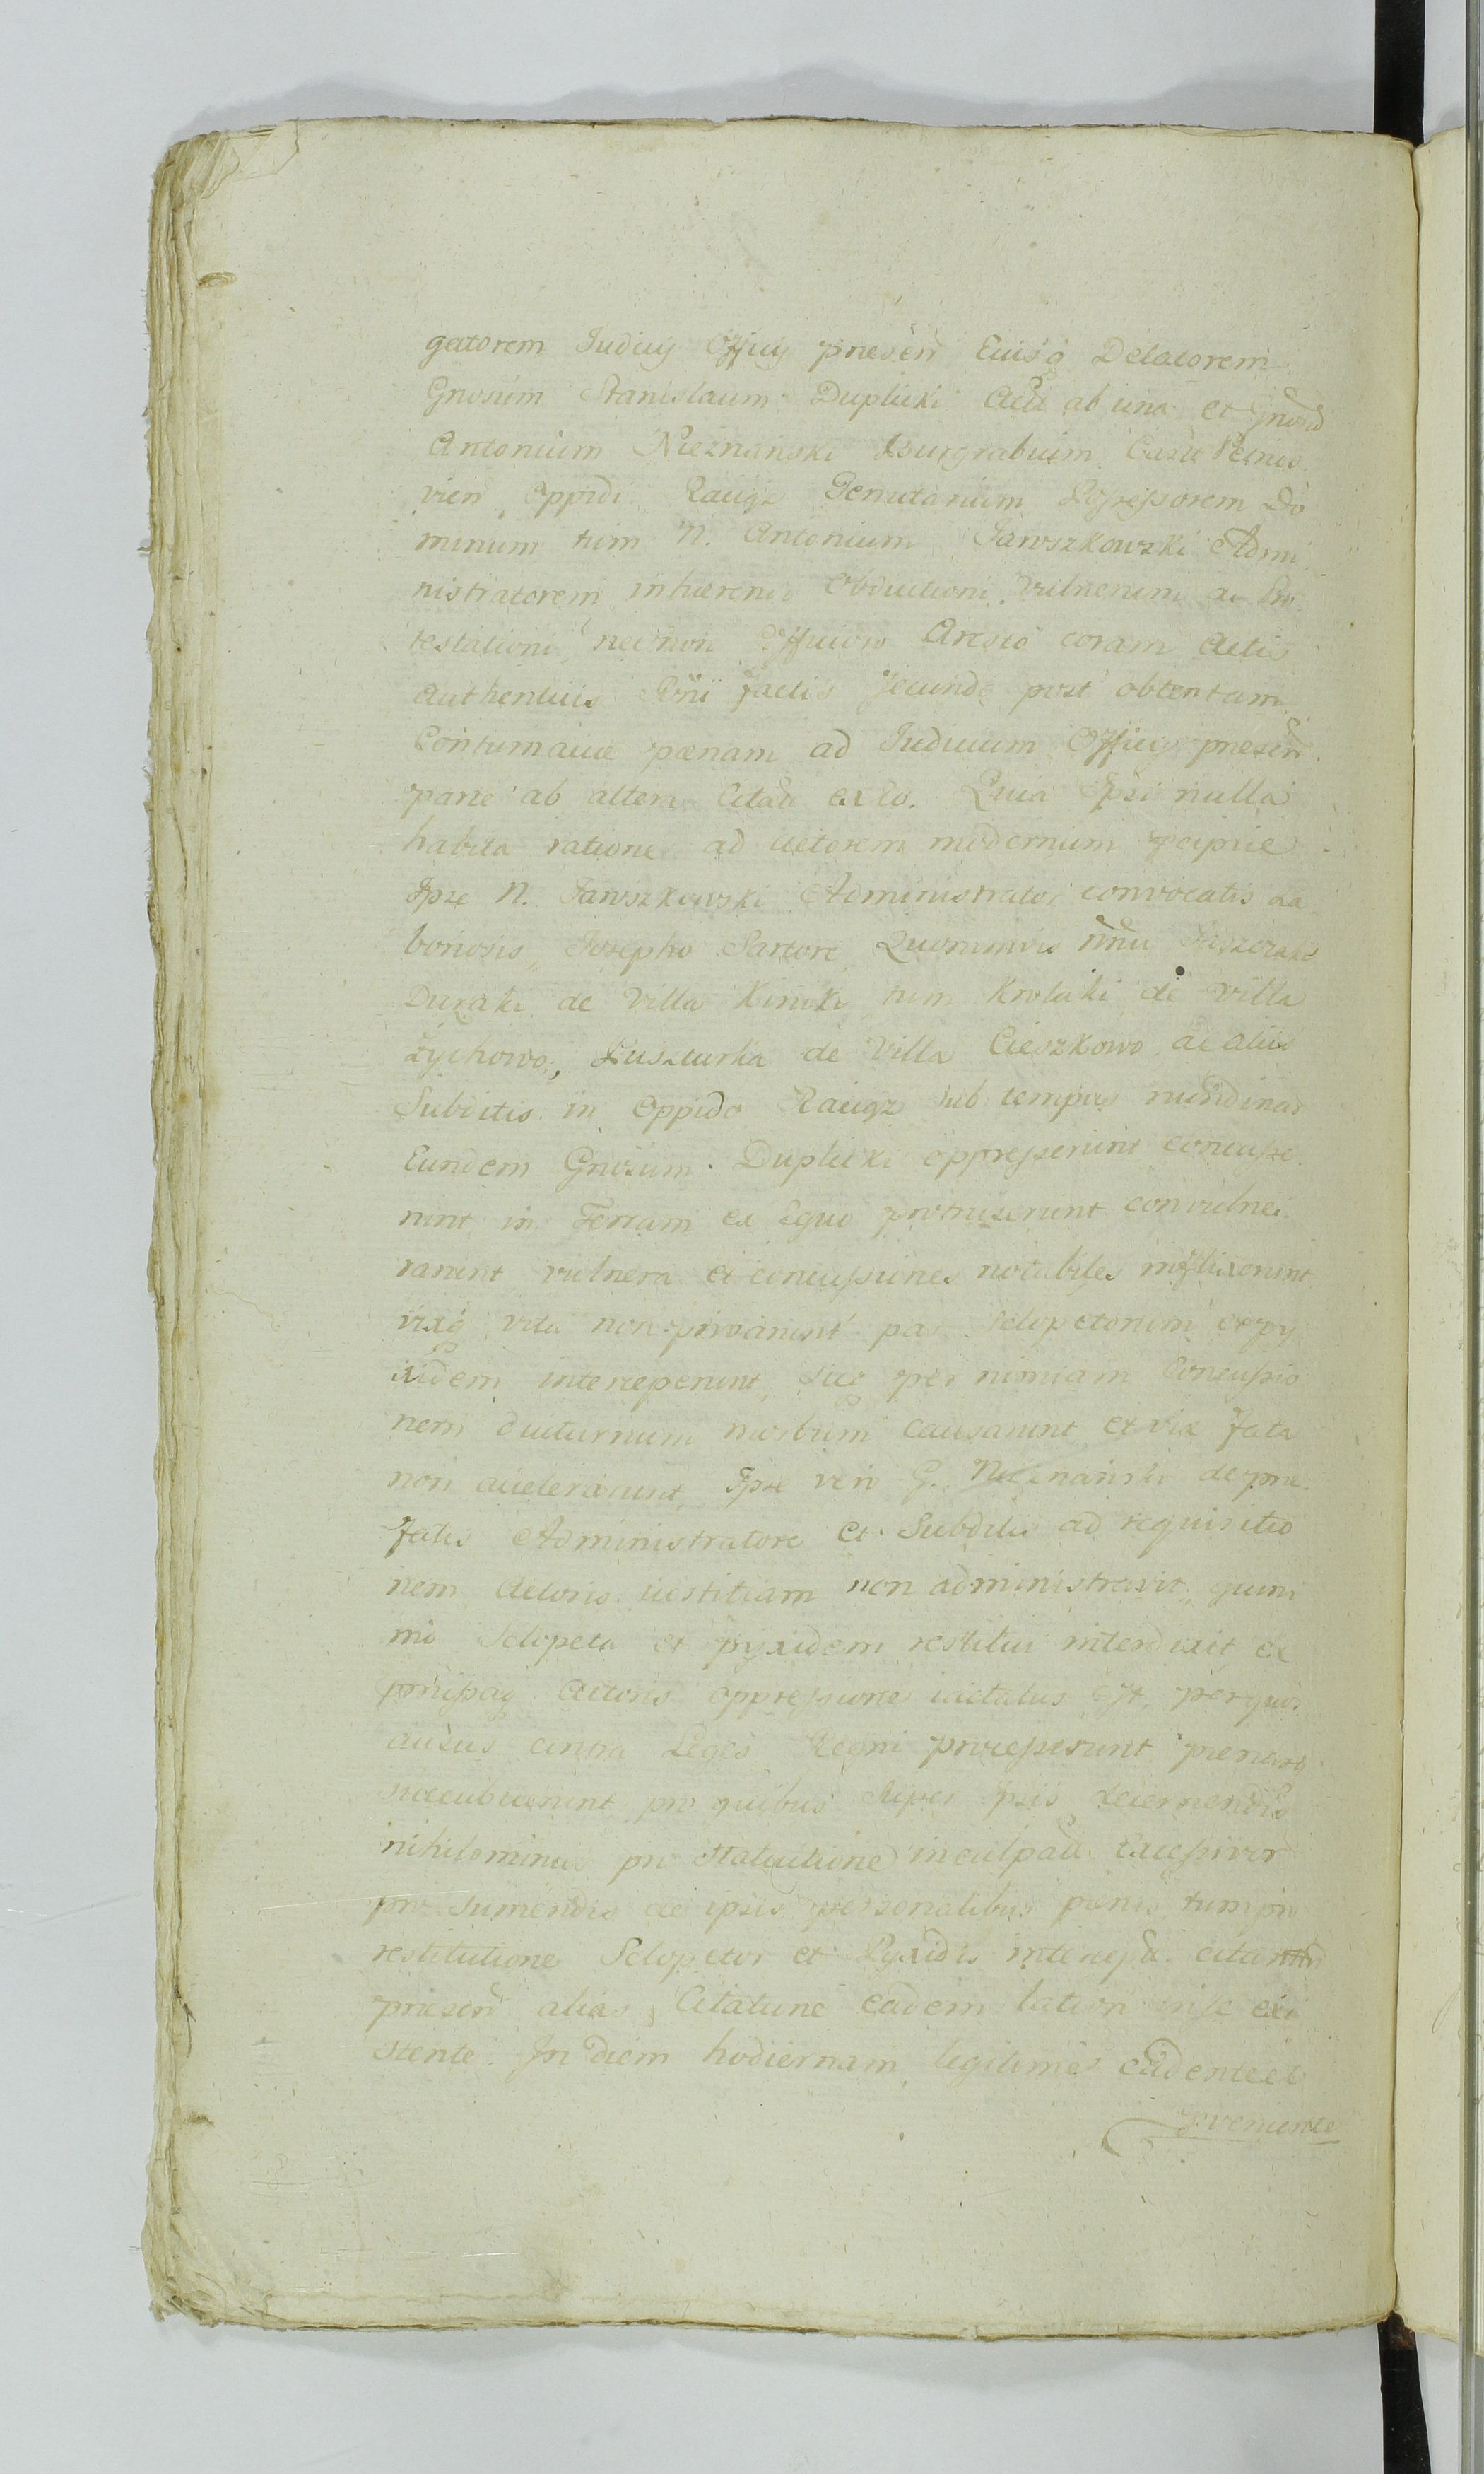 gatorem Judicij Officij præsen Eiusq Delatorem
Gnosum Stanislaum Duplicki Acti ab una et Gnosũ
Antonium Nieznanski Burgrabium Castr
vien Oppidi Raciąz Tenutarium Possessorem Do
minum tum N. Antonium Jawszkowzki Admi
nistratorem inhærendo Obductioni vulnerum ac Pro
testationi necnon Officioso Aresto coram Actis
Authenticis factis secundo post obtentam
Contumaciæ pænam ad Judicium Officij præsen
parte ab altera Citati ex Eo. Quia Ipsi nulla
habita ratione ad actorem modernum præcipue
Ipse N. Jawszkowski Administrator convocatis La
boriosis, Josepho Sartore,
de Villa Kiniki tum Krolicki de Villa
Żychowo, Puszturka de Villa Cieszkowo ac aliis
Subditis in Oppido Raciąz sub tempus nundinar
Eundem Gnosum Duplicki oppresserunt concusse
runt in Terram ex Equo protruserunt convulne
rarunt vulnera et concussiones notabiles inflixerunt
vixq vita non privarunt par sclopetorum et py
xidem interceperunt, sicq per nimiam Concussio
nem diuturnum morbum causarunt et vix fata
non accelerarunt, Ipse vero G. Nieznanski de præ
fatis Administratore et Subditis ad requisitio
nem Actoris iustitiam non administravit, quini
mo Sclopeta et pyxidem restitui interdixit ex
præmissaq Actoris oppressione iactatus est, per quos
ausus contra Leges Regni processerunt pœnasq
succubuerunt pro quibus super Ipsis decernendis
nihilominus pro statuitione inculpatt Excessivor
pro sumendis de ipsis personalibus pœnis tum pro
restitutione Sclopetor et Pyxidis intercepta citan
præsen alias Citatione eadem lation in se exi
stente. In diem hodiernam legitime cadente et
proveniente